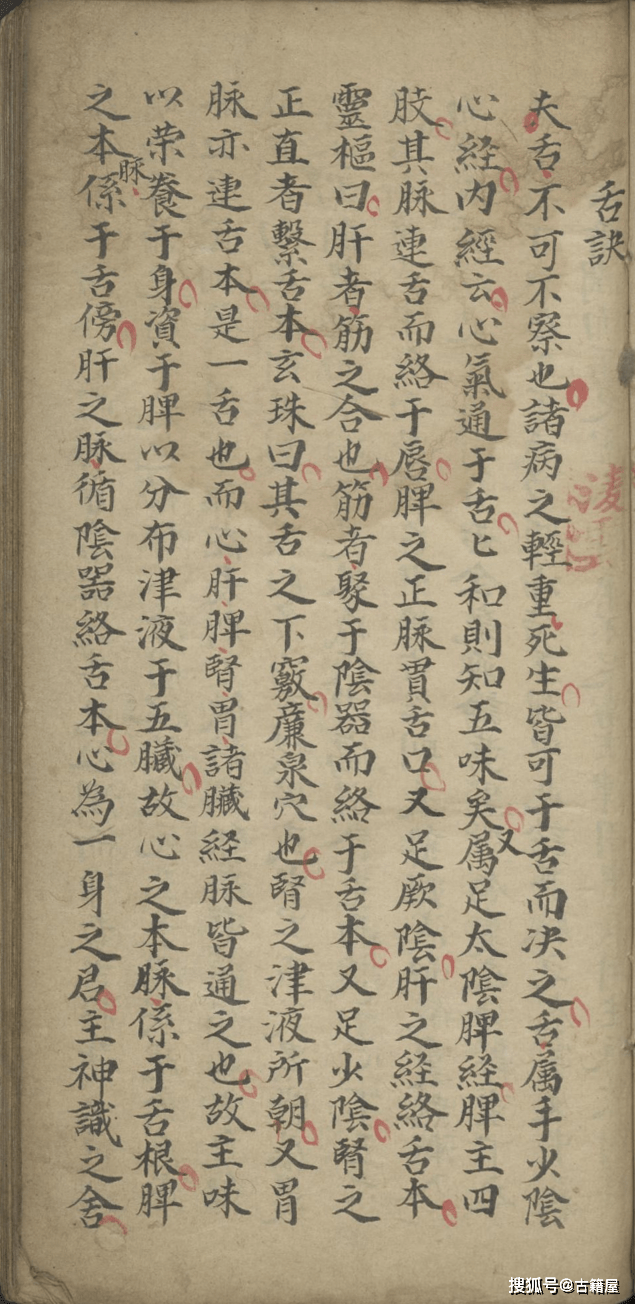 舌訣
夫舌不可不察也諸病之輕重死生皆可于舌而决之舌属手少陰
心経内經云心氣通于舌匕和則知五味矣又属足太陰脾経脾主四
肢其脉連舌而絡于唇脾之正脉貫舌口又足厥陰肝之経絡舌本
靈樞曰肝者筋之合也筋者聚于陰器而絡于舌本又足少陰腎之
正直者繫舌本玄珠曰其舌之下竅廉泉穴也腎之津液所朝又胃
脉亦連舌本是一舌也而心肝脾腎胃諸臓経脉皆通之也故主味
以荣養于身資于脾以分布津液于五臓故心之本脉係于舌根脾
之本脉係于舌傍肝之脉循陰器絡舌本心為一身之君主神識之舍
搜狐号@古籍屋